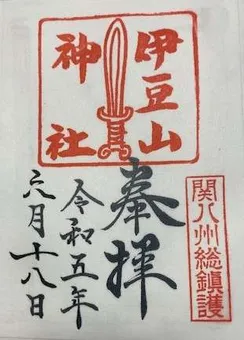 伊豆山
神社
奉拝
関八州総鎮護
令和五年
六月十八日